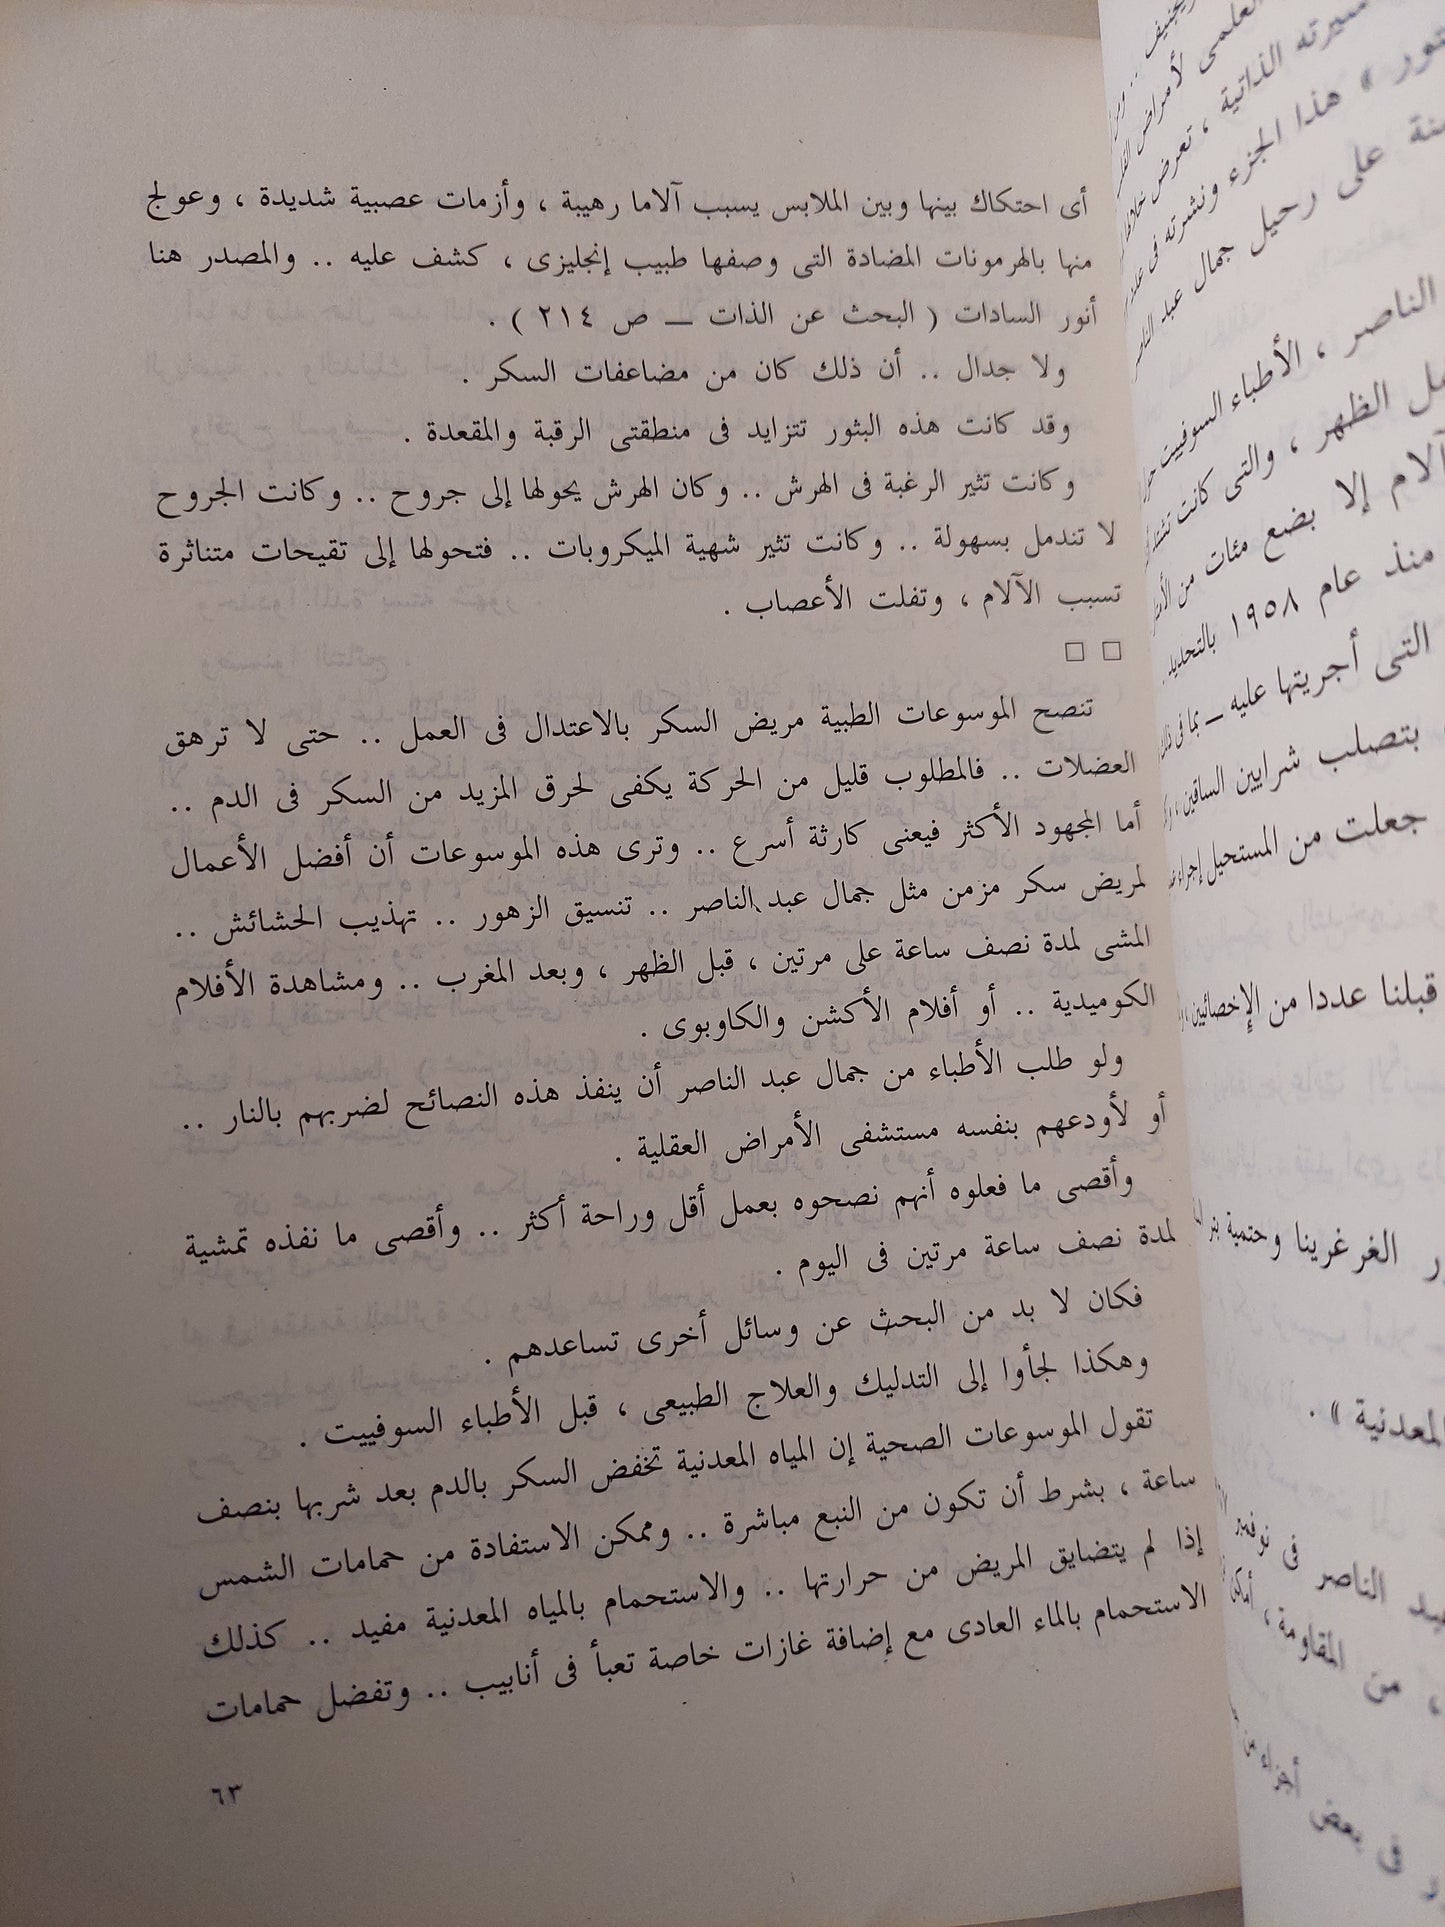 أى احتكاك بينها وبين الملابس يسبب آلاما رهيبة ، وأزمات عصبية شديدة ، وعولج
منها بالهرمونات المضادة التى وصفها طبيب إنجليزى ، كشف عليه .. والمصدر هنا
أنور السادات ( البحث عن الذات — ص ٢١٤ ) .
ولا جدال .. أن ذلك كان من مضاعفات السكر .
وقد كانت هذه البثور تتزايد فى منطقتى الرقبة والمقعدة .
وكانت تثير الرغبة فى الهرش .. وكان الهرش يحولها إلى جروح .. وكانت الجروح
لا تندمل بسهولة .. وكانت تثير شهية الميكروبات .. فتحولها إلى تقيحات متناثرة
تسبب الآلام ، وتفلت الأعصاب .
□ □
تنصح الموسوعات الطبية مريض السكر بالاعتدال فى العمل .. حتى لا ترهق
العضلات .. فالمطلوب قليل من الحركة يكفى لحرق المزيد من السكر فى الدم ..
أما المجهود الأكثر فيعنى كارثة أسرع .. وترى هذه الموسوعات أن أفضل الأعمال
لمريض سكر مزمن مثل جمال عبد الناصر .. تنسيق الزهور .. تهذيب الحشائش ..
المشى لمدة نصف ساعة على مرتين ، قبل الظهر ، وبعد المغرب .. ومشاهدة الأفلام
الكوميدية .. أو أفلام الأكشن والكاوبوى .
ولو طلب الأطباء من جمال عبد الناصر أن ينفذ هذه النصائح لضربهم بالنار ..
أو لأودعهم بنفسه مستشفى الأمراض العقلية .
وأقصى ما فعلوه أنهم نصحوه بعمل أقل وراحة أكثر .. وأقصى ما نفذه تمشية
لمدة نصف ساعة مرتين فى اليوم .
فكان لا بد من البحث عن وسائل أخرى تساعدهم .
وهكذا لجأوا إلى التدليك والعلاج الطبيعى ، قبل الأطباء السوفييت .
تقول الموسوعات الصحية إن المياه المعدنية تخفض السكر بالدم بعد شربها بنصف
ساعة ، بشرط أن تكون من النبع مباشرة .. وممكن الاستفادة من حمامات الشمس
إذا لم يتضايق المريض من حرارتها .. والاستحمام بالمياه المعدنية مفيد .. كذلك
الاستحمام بالماء العادى مع إضافة غازات خاصة تعبأ فى أنابيب .. وتفضل حمامات
٦٣
العلمى لأمراض
سيرته الذاتية ، تعرض
» هذا الجزء ونشرته فى
على رحيل جمال عبد
الناصر ، الأطباء السوفييت
الظهر ، والتى كانت
آلام إلا بضع مئات من
منذ عام ١٩٥٨ بالتحديد .
التى أجريتها عليه — بما فى
بتصلب شرايين الساقين ،
جعلت من المستحيل إجراء
قبلنا عددا من الإخصائيين ،
الغرغرينا وحتمية بتر
المعدنية » .
الناصر فى نوفمبر
، من المقاومة ،
فى بعض أجزاء من